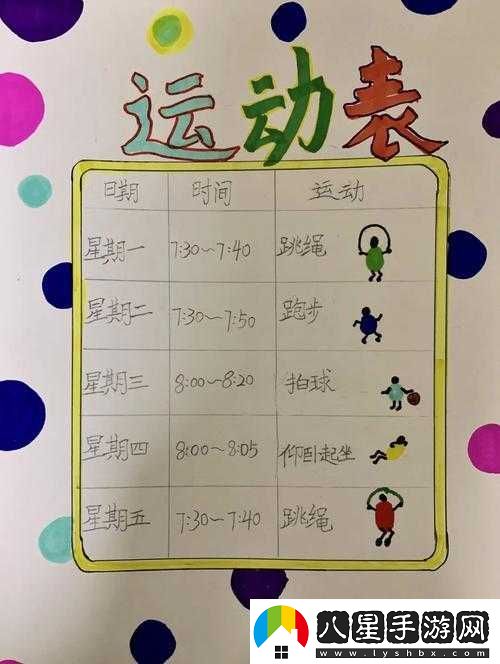 运动表
日期 时间 运动
星期一 7:30~7:40 跳绳
星期二 7:30~7:50 跑步
星期三 8:00~8:20 拍球
星期四 8:00~8:05 仰卧起坐
星期五 7:30~7:40 跳绳
八星手游网
www.lyshbx.com